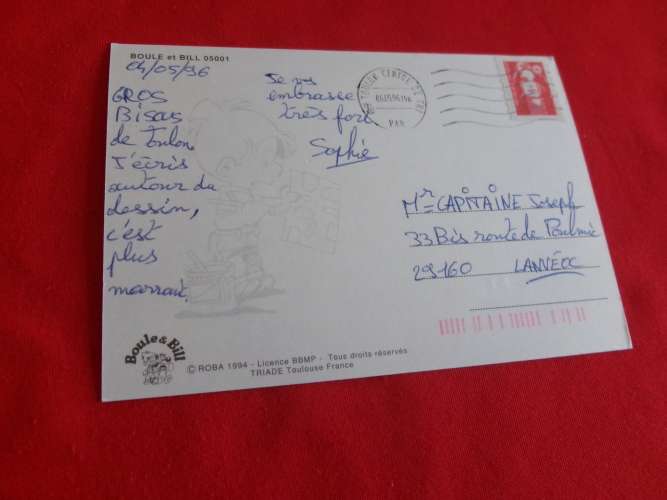 BOULE et BILL 05001
04/05/96
GROS
Bisous
de Toulon
J'écris
autour du
dessin,
c'est
plus
marrant.
Je vs
embrasse
très fort
Sophie
TOULON CENTRE DE TRI
VAR
Mr CAPITAINE Joseph
33 Bis route de Poulmic
29160 LANVÉOC
Boule & Bill
© ROBA 1994 - Licence BBMP - Tous droits réservés
TRIADE Toulouse France